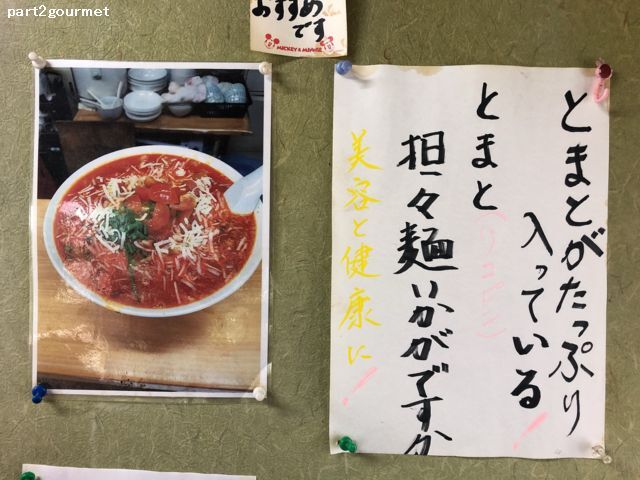 part2gourmet
おすすめ
です
MICKEY & MINNIE
とまとがたっぷり
入っている!
とまと
(リコピン)
担々麺いかがですか
美容と健康に!